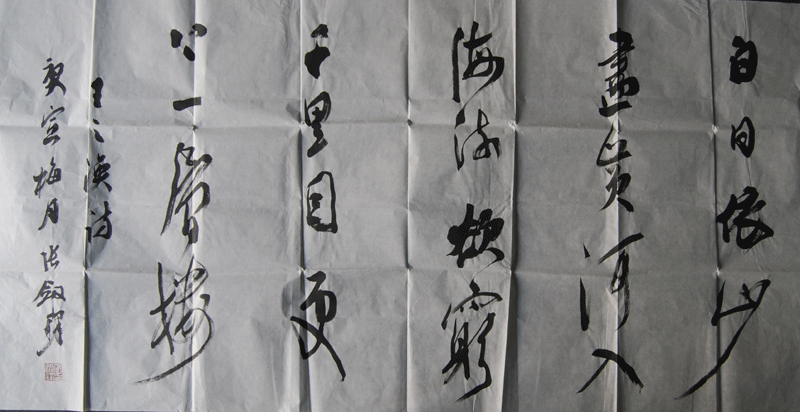 白日依山
盡黃河入
海流欲窮
千里目更
上一層樓
王之渙詩
庚寅梅月張劍